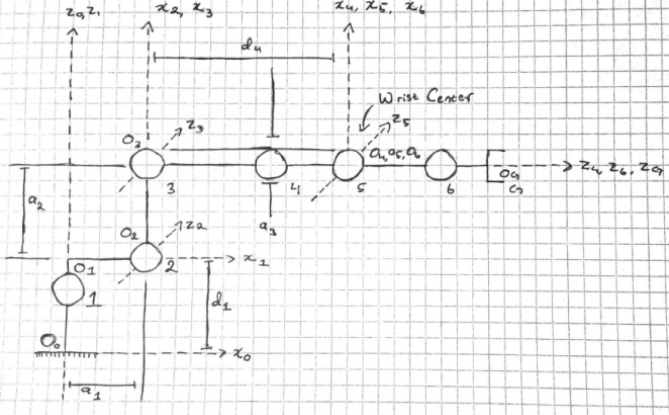 z₀,z₁
x₂, x₃
x₄, x₅, x₆
d₄
Wrist Center
z₃
z₅
O₃
O₄,O₅,O₆
3
4
5
6
OG
G
z₄, z₆, zG
a₂
a₃
O₂
z₂
2
x₁
O₁
1
d₁
O₀
x₀
a₁